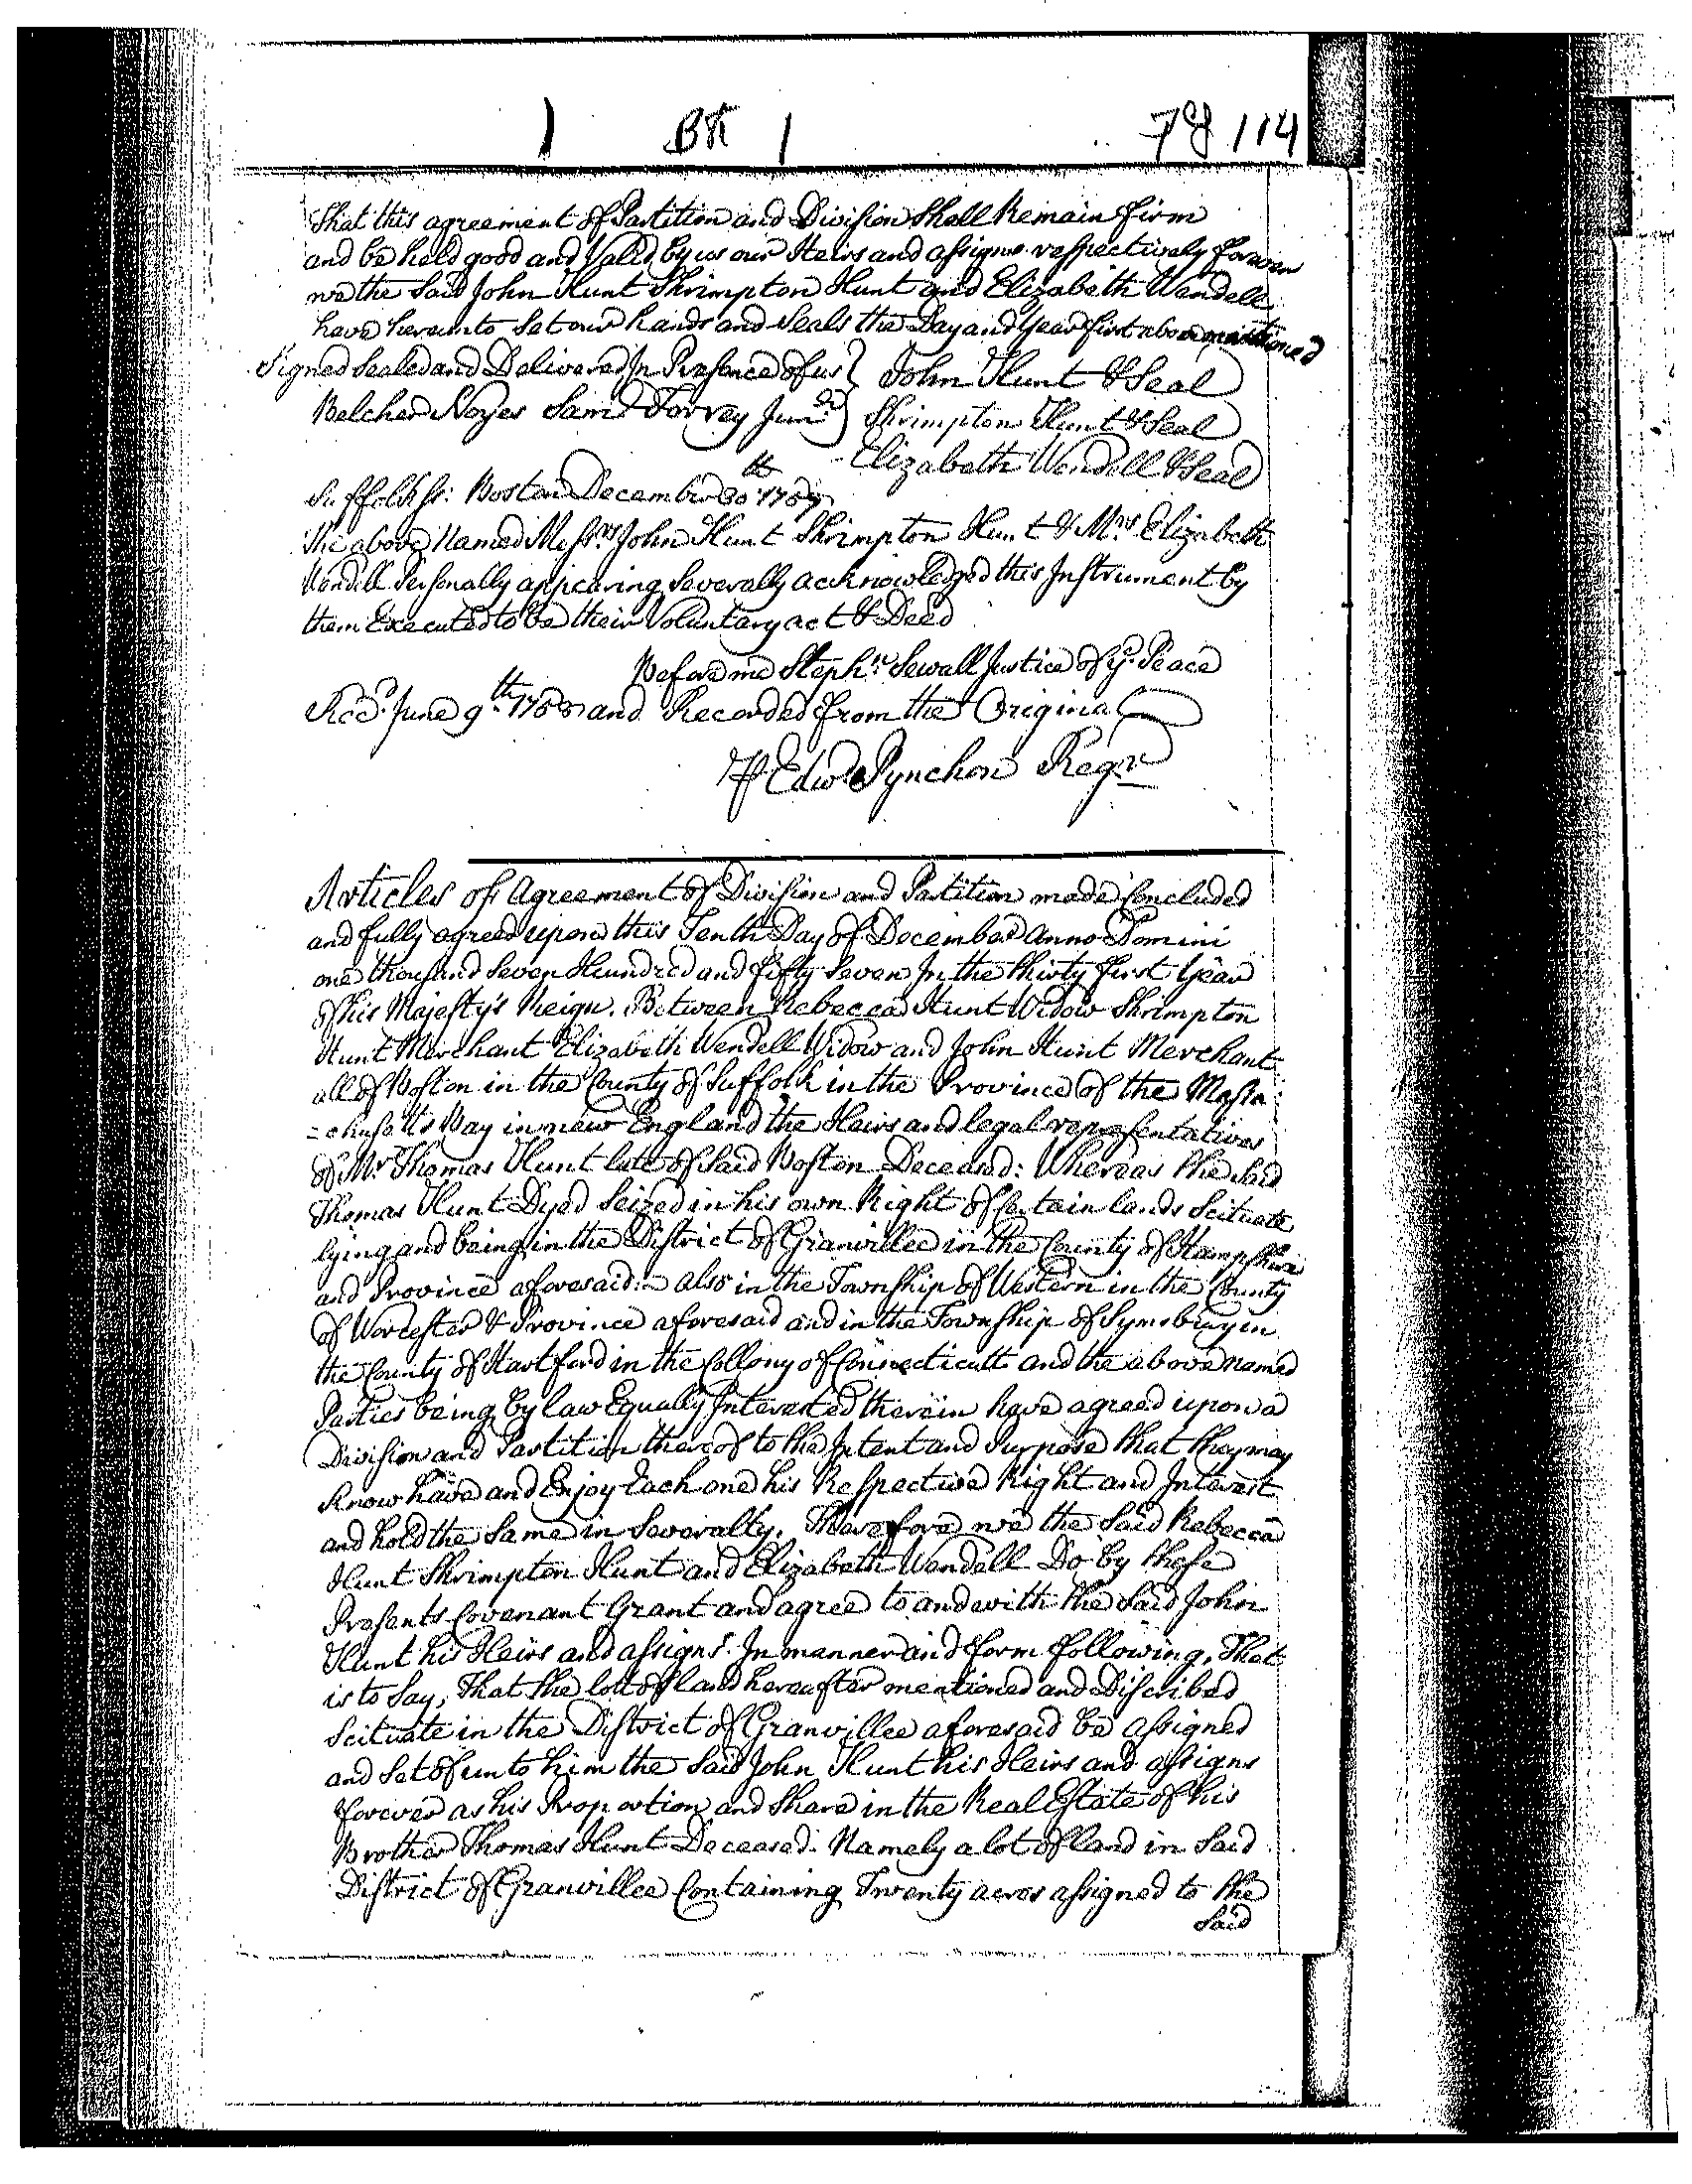 1 BK 1 78 114
That this agreement of Partition and Division Shall Remain firm
and be held good and Valid by us our Heirs and assigns respectively forever
we the Said John Hunt Shrimpton Hunt and Elizabeth Wendell
have hereunto Set our hands and Seals the Day and Year first above mentioned
Signed Sealed and Delivered In Presence of us } John Hunt & Seal
Belcher Noyes Saml Torrey Junr } Shrimpton Hunt & Seal
Elizabeth Wendell & Seal
Suffolk ss: Boston December 30th 1757
The above Named Messrs John Hunt Shrimpton Hunt & Mrs Elizabeth
Wendell Personally appearing Severally acknowledged this Instrument by
them Executed to be their Voluntary act & Deed
Before me Stephn Sewall Justice of ye Peace
Recd. June 9th 1758 and Recorded from the Original
℔ Edwd Pynchon Regr
Articles of Agreement of Division and Partition made Concluded
and fully agreed upon this Tenth Day of December Anno Domini
one thousand Seven Hundred and fifty Seven In the thirty first Year
of his Majesty's Reign. Between Rebecca Hunt Widow Shrimpton
Hunt Merchant Elizabeth Wendell Widow and John Hunt Merchant
all of Boston in the County of Suffolk in the Province of the Massa
=chusetts Bay in new England the Heirs and legal representatives
of Mr Thomas Hunt late of Said Boston Deceased: Whereas the Said
Thomas Hunt Dyed Seized in his own Right of Certain lands Scituate
lying and being in the District of Granvillee in the County of Hampshire
and Province aforesaid: also in the Township of Western in the County
of Worcester & Province aforesaid and in the Township of Symsbury in
the County of Hartford in the Collony of Connecticutt and the above named
Parties being by law Equally Interested therein have agreed upon a
Division and Partition thereof to the Intent and Purpose that they may
know have and Enjoy Each one his Respective Right and Interest
and hold the Same in Severalty. Therefore we the Said Rebecca
Hunt Shrimpton Hunt and Elizabeth Wendell Do by these
Presents Covenant Grant and agree to and with the Said John
Hunt his Heirs and assigns In manner and form following. That
is to Say, That the lott of land hereafter mentioned and Discribed
Scituate in the District of Granvillee aforesaid be assigned
and Set of unto him the Said John Hunt his Heirs and assigns
forever as his Proportion and Share in the Real Estate of his
Brother Thomas Hunt Deceased. Namely a lot of land in Said
District of Granvillee Containing Twenty acres assigned to the
Said